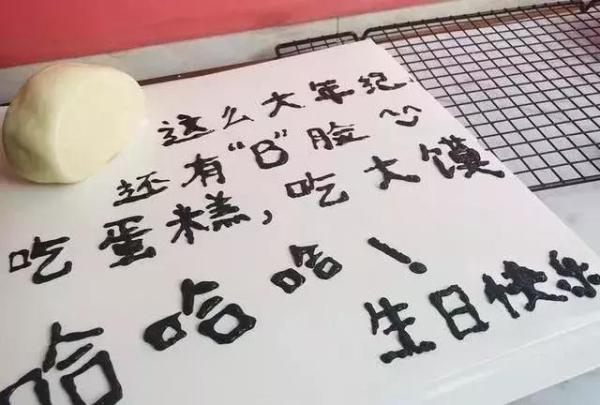 这么大年纪
还有“B”脸
吃蛋糕,吃大馍
哈哈哈哈!
生日快乐